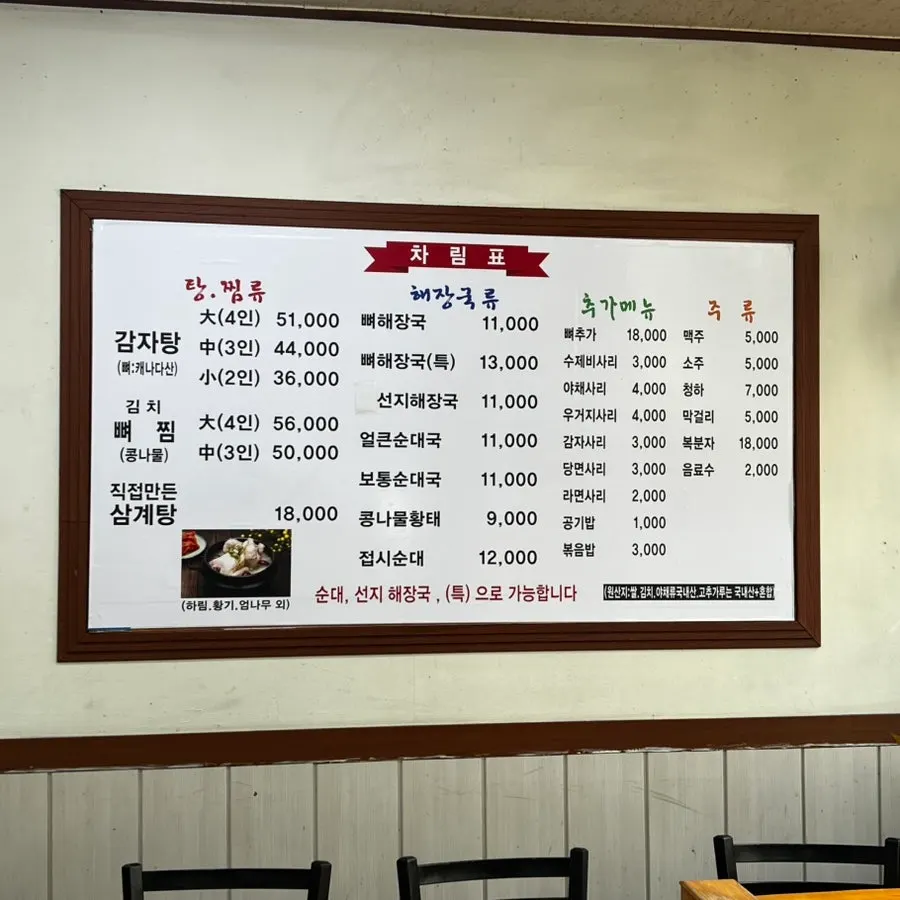 차림표
탕.찜류
감자탕
(뼈:캐나다산)
大(4인) 51,000
中(3인) 44,000
小(2인) 36,000
김치
뼈 찜
(콩나물)
大(4인) 56,000
中(3인) 50,000
직접만든
삼계탕 18,000
(하림.황기.엄나무 외)
해장국류
뼈해장국 11,000
뼈해장국(특) 13,000
선지해장국 11,000
얼큰순대국 11,000
보통순대국 11,000
콩나물황태 9,000
접시순대 12,000
순대, 선지 해장국 , (특) 으로 가능합니다
추가메뉴
뼈추가 18,000
수제비사리 3,000
야채사리 4,000
우거지사리 4,000
감자사리 3,000
당면사리 3,000
라면사리 2,000
공기밥 1,000
볶음밥 3,000
주 류
맥주 5,000
소주 5,000
청하 7,000
막걸리 5,000
복분자 18,000
음료수 2,000
(원산지:쌀,김치,야채류국내산.고추가루는 국내산+혼합)